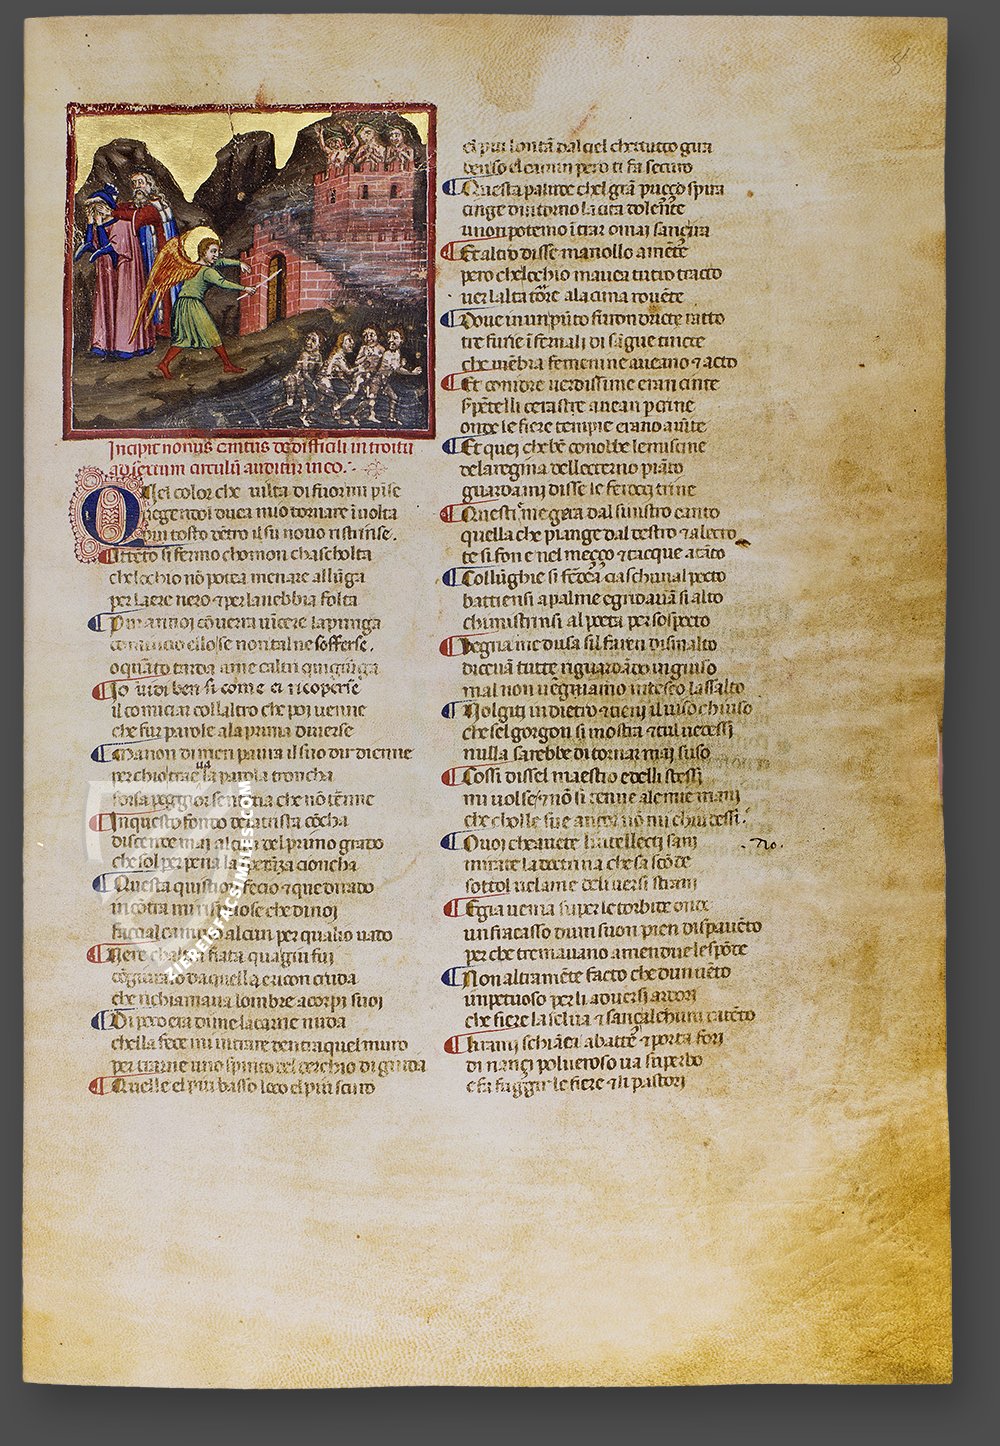 8
Incipit nonus cantus de difficili introitu
ad sextum circulũ auditur in eo.
Quel color che vilta di fuor mi pi̅se
vegendol duca mio tornare i̅ volta
piu tosto de̅tro il su nouo ristrinse.
Atte̅to si fermo chomon chascholta
che lochio nõ potea menare allu̅ga
per laere nero ⁊ per la nebbia folta
Pur annoi co̅uerra vi̅cere la punga
comincio ello se non tal ne sofferse.
o quãto tarda a me caltri qui giu̅ga
Io vidi ben si come ei ricoperse
il cominciar collaltro che poi venne
che fur parole ala prima diuerse
Ma non dimen paura il suo dir dienne
perchio traeua la parola troncha
forsa peggior sentẽtia che nõ te̅nne
In questo fondo dela trista cõcha
discende mai alcun del primo grado
che sol per pena la speranza cioncha
Questa quistion fecio ⁊ que di rado
incõtra mi rispuose che di noi
faccial camino alcun per qualio vado
Vere chaltra fiata qua giu fui
cõgiurato da quella ericon cruda
che richiamaua lombre a corpi suoi
Di poco era di me la carne nuda
chella fece mi intrare dentra quel muro
per trarne uno spirito del cerchio di giuda
Quelle el piu basso loco el piu scuro
el piu lontã dal ciel che tutto gira
ben so el camin pero ti fa securo
Questa palude chel grã puczo spira
cinge di̅torno la cita dole̅te
u non potemo i̅trar omai sanç ira
Et altro disse ma nollo a me̅te
pero che lochio mauea tutto tracto
ver lalta torre ala cima roue̅te
Doue in un pũto furon dricte ratto
tre furie i̅fernali di sangue tincte
che me̅bra femenine aueano ⁊ acto
Et con idre verdissime eran cinte
serpe̅telli ceraste auean p crine
onde le fiere tempie erano auite
Et quei che be̅ conobbe le mescine
dela regina dellecterno piãto
guarda mi disse le feroci erine
Questi me gera dal sinistro canto
quella che piange dal destro ⁊ alecto
tesifone nel meçço ⁊ tacque atãto
Collu̅ghie si fe̅dea ciaschuna il pecto
battiensi a palme e gridauã si alto
chi mi strinsi al poeta per sospecto
Vegna medusa sil faren di smalto
diceuã tutte riguardãdo in giuso
mal non ve̅giamo in teseo lassalto
Volgiti in dietro ⁊ tieni il viso chiuso
che sel gorgon si mostra ⁊ tul vedessi
nulla sarebbe di tornar mai suso
Cossi dissel maestro ed elli stessi
mi volse ⁊ nõ si tenne ale mie mani
che cholle sue ancor nõ mi chiudessi.
Ouoi chauete li ntellecti sani
mirate la doctrina che sascõde
sottol velame deli versi strani
E gia venia su per le torbite onde
un fracasso dun suon pien di spaue̅to
per che tremauano amendue le spõde
Non altrame̅te facto che dun ue̅to
impetuoso per li aduersi ardori
che fiere la selua ⁊ sançalchun ratte̅to
Li rami schiãta abatte ⁊ porta fori
dinançi polueroso va superbo
e fa fuggir le fiere ⁊ li pastori
No.
ZIEREIS FACSIMILES .COM